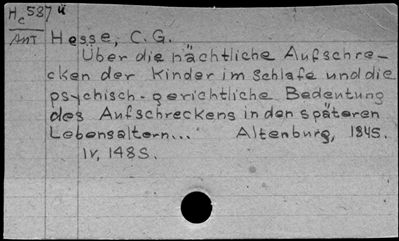 Hc 587 ü
ANT Hesse, C.G.
Über die nächtliche Aufschre-
cken der Kinder im Schlafe und die
psychisch-gerichtliche Bedeutung
des Aufschreckens in den späteren
Lebensaltern... Altenburg, 1845.
IV, 148 S.